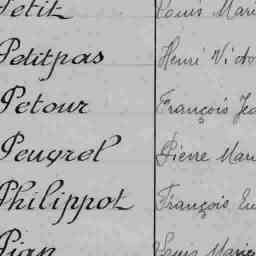 Petit Louis Mari
Petitpas Henri Victo
Petour François Jea
Peugrel Pierre Mari
Philippot François Eu
Pian Louis Marie